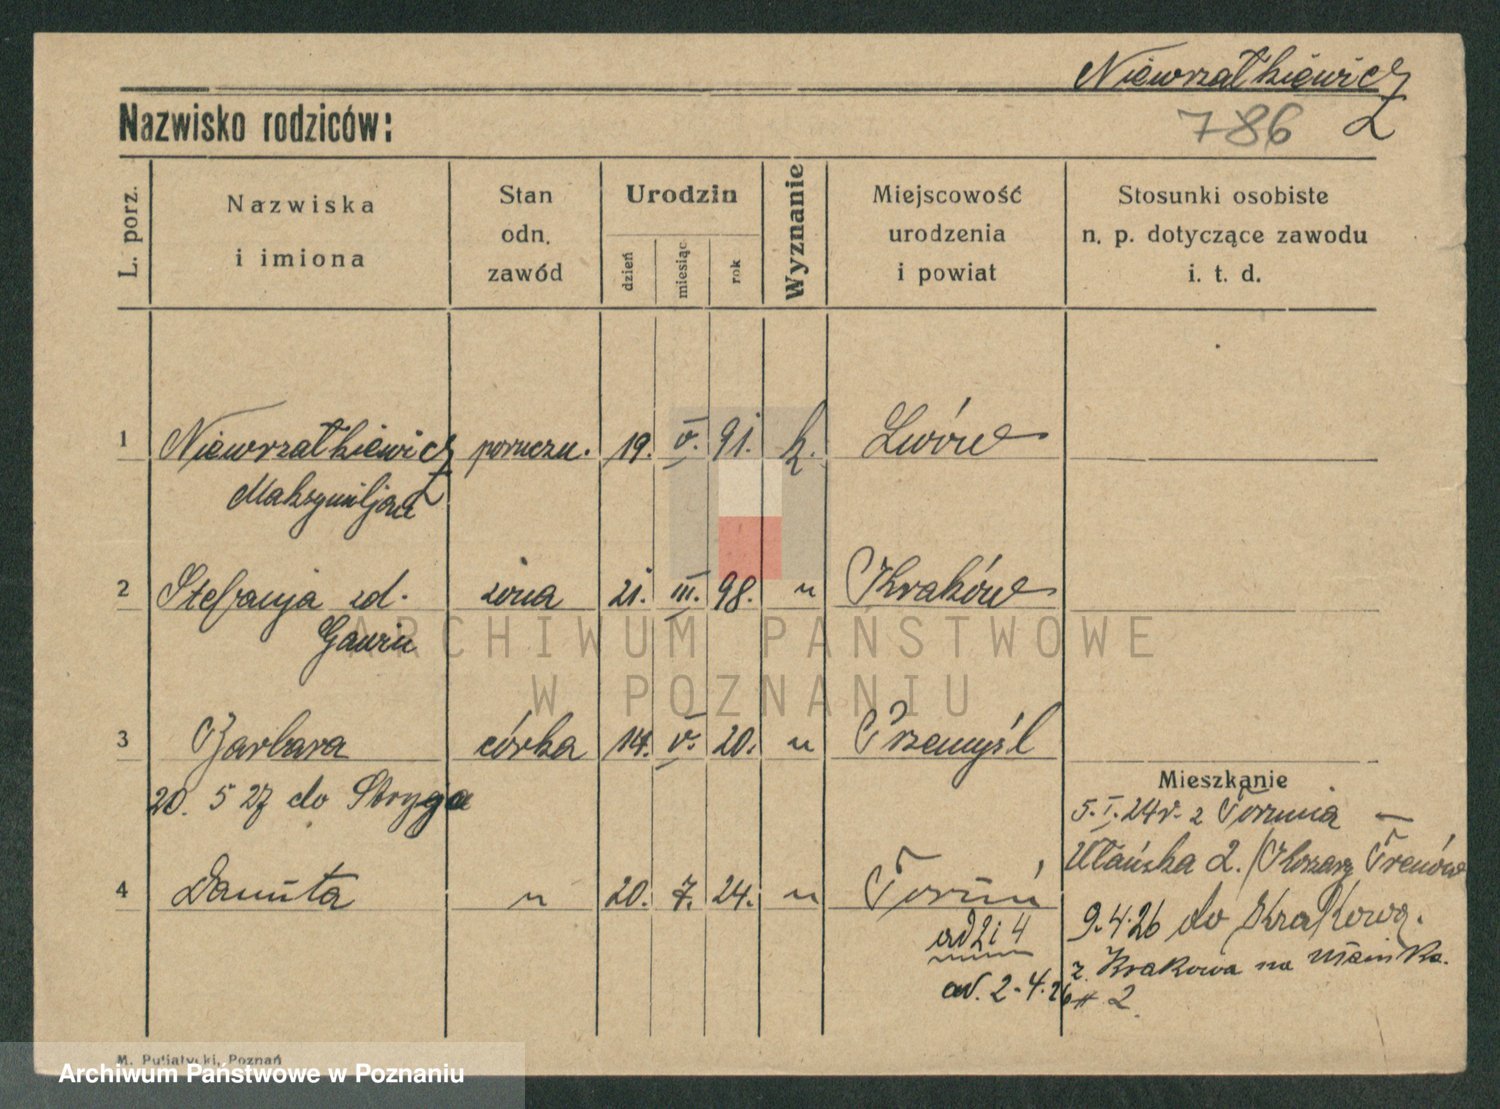 Niewrzałkiewicz
786
Nazwisko rodziców:
L. porz.
Nazwiska
i imiona
Stan
odn.
zawód
Urodzin
dzień
miesiąc
rok
Wyznanie
Miejscowość
urodzenia
i powiat
Stosunki osobiste
n. p. dotyczące zawodu
i. t. d.
1 Niewrzałkiewicz poruczn. 19. V. 91. k. Lwów
Maksymiljan
2 Stefanja zd. żona 21. III. 98. " Kraków
Gawin
3 Barbara córka 14. V. 20. " Przemyśl
20. 5 27 do Stryja
4 Danuta " 20. 7. 24. " Toruń
ad 2 i 4
ad. 2-4.26
Mieszkanie
5. I. 24r. z Torunia —
Ułańska 2. / Koszary Trenów
9.4.26 do Krakowa.
z Krakowa na Ułańska.
# 2
M. Putiatycki, Poznań
ARCHIWUM PAŃSTWOWE
W POZNANIU
Archiwum Państwowe w Poznaniu